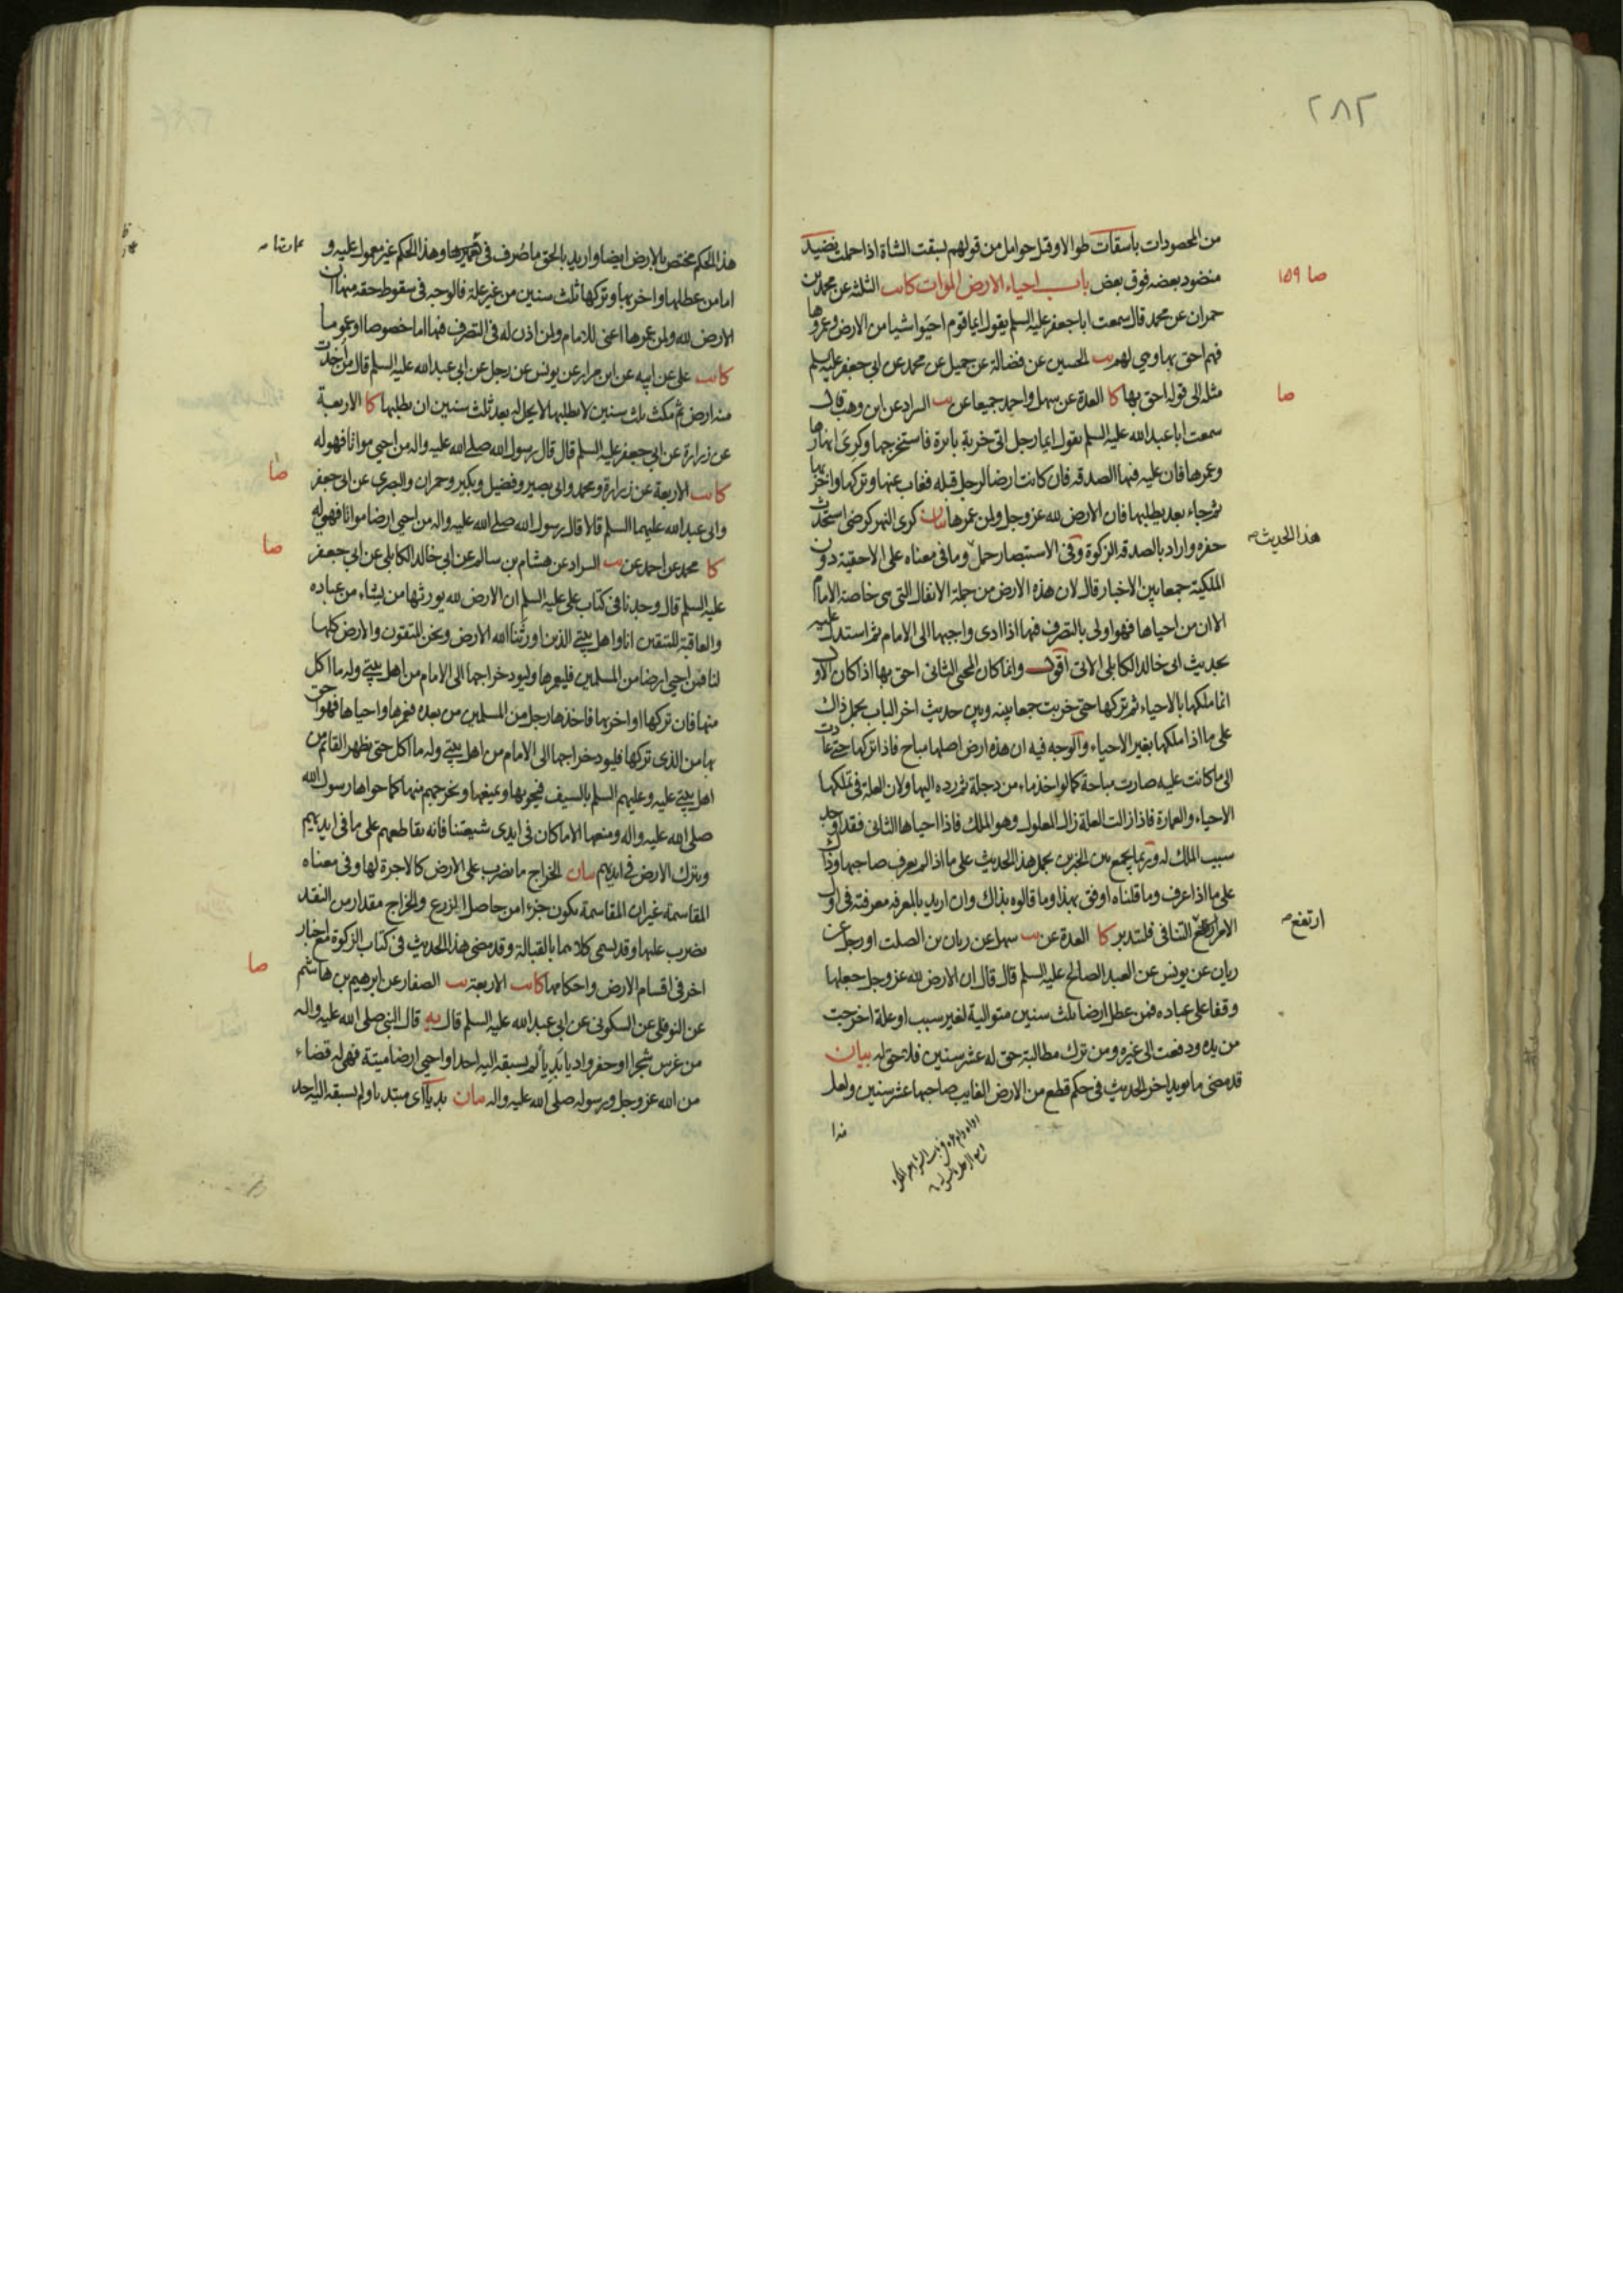 ٢٨٢
من المحصودات باسقات طوالا وقيل حوامل من قولهم بسقت الشاة اذا حملت نضيد
منضود بعضه فوق بعض باب احياء الارض الموات كا يب الثلثة عن محمد بن
صا ١٥٩
حمران عن محمد قال سمعت ابا جعفر عليه السلم يقول ايما قوم احيوا شيا من الارض وعمروها
فهم احق بها وهي لهم يب الحسين عن فضالة عن جميل عن محمد عن ابي جعفر عليه السلم
مثله الى قوله احق بها كا العدة عن سهل واحمد جميعا عن يب السراد عن ابن وهب قال
صا
سمعت ابا عبدالله عليه السلم يقول ايما رجل اتى خربة بائرة فاستخرجها وكرى انهارها
وعمرها فان عليه فيها الصدقه فان كانت ارضا لرجل قبله فغاب عنها وتركها واخربها
ثم جاء بعد يطلبها فان الارض لله عز وجل ولمن عمرها بيان كرى النهر كرضى استحدث
حفره واراد بالصدقه الزكوة وفى الاستبصار حمل وما فى معناه على الاحقية دون
هذا الحديث صح
الملكية جمعا بين الاخبار قال لان هذه الارض من جملة الانفال التى هى خاصة الامام
الا ان من احياها فهو اولى بالتصرف فيها اذا ادى واجبها الى الامام ثم استدل عليه
بحديث ابى خالد الكابلى الاتى اقول وانما كان المحيى الثانى احق بها اذا كان الاول
انما ملكها بالاحياء ثم تركها حتى خربت جمعا بينه وبين حديث اخر الباب بحمل ذاك
على ما اذا ملكها بغير الاحياء والوجه فيه ان هذه ارض اصلها مباح فاذا تركها حتى عادت
الى ما كانت عليه صارت مباحة كما لو اخذ ماء من دجلة ثم رده اليها ولان العلة فى تملكها
الاحياء والعمارة فاذا زالت العلة زال المعلول وهو الملك فاذا احياها الثانى فقد اوجد
سبب الملك له وربما يجمع بين الخبرين بحمل هذا الحديث على ما اذا لم يعرف صاحبها وذاك
على ما اذا عرف وما قلناه اوفق بهذا وما قالوه بذاك وان اريد بالمعرفه معرفته فى اول
الامر ارتفع التنافى فليتدبر كا العدة عن يب سهل عن ريان بن الصلت او رجل عن
ارتفع صح
ريان عن يونس عن العبد الصالح عليه السلم قال قال ان الارض لله عز وجل جعلها
وقفا على عباده فمن عطل ارضا ثلث سنين متوالية لغير سبب او علة اخرجت
من يده ودفعت الى غيره ومن ترك مطالبة حق له عشر سنين فلا حق له بيان
قد مضى ما يويد اخر الحديث فى حكم قطع من الارض الغايب صاحبها عشر سنين ولعل
هذا
هذا الحكم مختص بالارض ايضا واريد بالحق ما صرف فى تعميرها وهذا الحكم غير معمول عليه و
اما من عطلها واخربها وتركها ثلث سنين من غير علة فالوجه فى سقوط حقه منها ان
الارض لله ولمن عمرها اعنى للامام ولمن اذن له فى التصرف فيها اما خصوصا او عموما
كا يب على عن ابيه عن ابن مرار عن يونس عن رجل عن ابى عبد الله عليه السلم قال من اخذت
منه ارض ثم مكث ثلث سنين لا يطلبها لا يحل له بعد ثلث سنين ان يطلبها كا الاربعة
عن زرارة عن ابي جعفر عليه السلم قال قال رسول الله صلى الله عليه واله من احيى مواتا فهو له
كا يب الاربعة عن زرارة ومحمد وابى بصير وفضيل وبكير وحمران والبصرى عن ابى جعفر
صا
وابى عبدالله عليهما السلم قالا قال رسول الله صلى الله عليه واله من احيى ارضا مواتا فهى له
كا محمد عن احمد عن يب السراد عن هشام بن سالم عن ابي خالد الكابلي عن ابي جعفر
صا
عليه السلم قال وجدنا فى كتاب على عليه السلم ان الارض لله يورثها من يشاء من عباده
والعاقبة للمتقين انا واهل بيتى الذين اورثنا الله الارض ونحن المتقون والارض كلها
لنا فمن احيى ارضا من المسلمين فليعمرها وليود خراجها الى الامام من اهل بيتى وله ما اكل
منها فان تركها او اخربها فاخذها رجل من المسلمين من بعده فعمرها واحياها فهو احق
بها من الذى تركها فليود خراجها الى الامام من اهل بيتى وله ما اكل حتى يظهر القائم من
اهل بيتى عليه وعليهم السلم بالسيف فيحويها ويمنعها ويخرجهم منها كما حواها رسول الله
صلى الله عليه واله ومنعها الا ما كان فى ايدى شيعتنا فانه يقاطعهم على ما فى ايديهم
ويترك الارض فى ايديهم بيان الخراج ما يضرب على الارض كالاجرة لها وفى معناه
المقاسمة غير ان المقاسمة يكون جزءا من حاصل الزرع والخراج مقدار من النقد
يضرب عليها وقد يسمى كلاهما بالقبالة وقد مضى هذا الحديث فى كتاب الزكوة مع اخبار
اخر فى اقسام الارض واحكامها كا يب الاربعة يب الصفار عن ابرهيم بن هاشم
صا
عن النوفلى عن السكونى عن ابى عبدالله عليه السلم قال يه قال النبى صلى الله عليه واله
من غرس شجرا او حفر واديا بديا لم يسبقه اليه احد او احيى ارضا ميتة فهى له قضاء
من الله عز وجل ورسوله صلى الله عليه واله بيان بديا اى مبتديا ولم يسبقه اليه احد